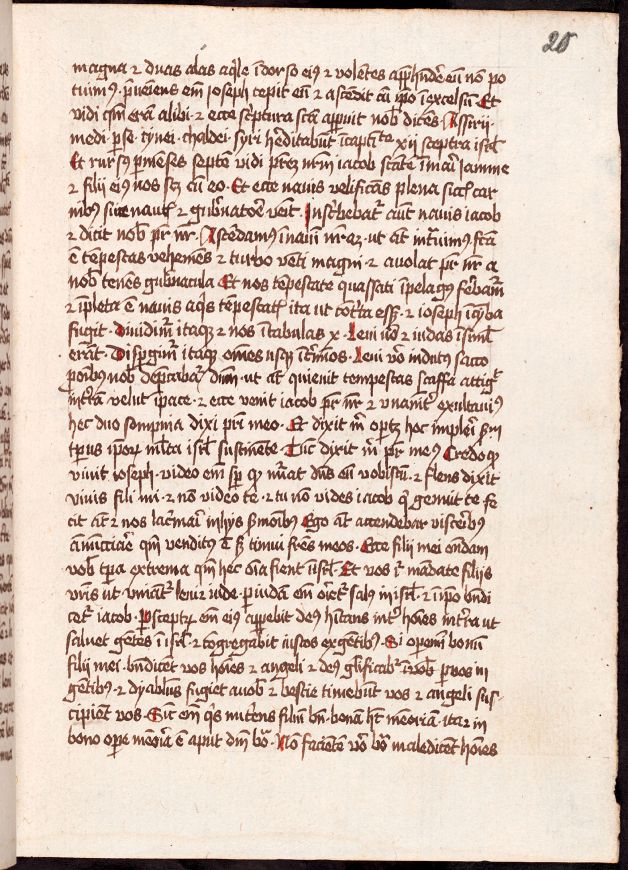 20
magna ⁊ duas alas aq̄le ī dorso eiꝰ ⁊ volētes app̄hēdẽ eū nō po
tuimꝰ · p̄ueniens em̄ Joseph cepit eū ⁊ ascēdit cū ip̄o ī excelsū Et
vidi qm̄ erā alibi ⁊ ecce sc̄ptura sc̄a app̄uit nob̄ dicēs · Assirij ·
medi · p̄se · chaldei · syri h̄editabūt ī captīte xij sceptra isrl̄
Et rursꝫ p̄ menses septē vidi pr̄eꝫ nr̄m iacob stātē ī mari Jamne
⁊ filij eiꝰ nos scꝫ cū eo · Et ecce nauis velificās plena siccꝭ car
nibꝰ sine naut̄ ⁊ gub̄natoẽ venit · Inscͥbebat̄ aūt nauis iacob
⁊ dicit nob̄ pr̄ nr̄ · Ascēdamꝰ ī nauī nr̄aꝫ · ut āt intͣuimꝰ fc̄a
ē tēpestas vehemēs ⁊ turbo vēti magni ⁊ auolat pr̄ nr̄ a
nob̄ tenēs gub̄nacula Et nos tēpestate quassati ī pelago fereba͂r
⁊ īpleta ē nauis aq̄s tēpestatꝭ ita ut ⁊ ioseph ī cȳba
fugit · Diuidim̄ itaqꝫ ⁊ nos ī tabulas x · leui v̄o ⁊ iudas ī siml̄
erāt · Disp̄gim̄ itaqꝫ om̄es usqꝫ ī tͬmīos · leui v̄o indutꝰ sacco
p̄ oībus nob̄ dep̄cabat̄ dnm̄ · ut āt quieuit tempestas scaffa attigit
in tͬrā velut ī pace · ⁊ ecce venit iacob pr̄ nr̄ ⁊ unaīmit̄ exultauiꝰ
hec duo sompnia dixi pr̄i meo · Et dixit m̄ oportꝫ hoc impleri sm̄
tp̄us ip̄oꝝ ml̄ta isrl̄ sustinente · Tūc dixit m̄ pr̄ meꝰ Credo qꝫ
viuit ioseph · video em̄ sp̄ qꝫ dn̄s eū vobiscū · ⁊ flens dixit
viuis fili mi · ⁊ nō video te · ⁊ tu nō vides iacob qͥ genuit te fe
cit āt ⁊ nos lacͥmari in hijs s̄monibꝰ Ego āt accendebar viscerbꝰ
anūcciaẽ qm̄ venditꝰ ē sꝫ timui fr̄es meos · Ecce filij mei ondam
vob̄ tp̄a extrema qm̄ hec oīa fient ī isrl̄ · Et vos mādate filijs
vr̄is ut vniant̄ leui ⁊ iude · p̄ iudam em̄ oriet̄ salꝰ in isrl̄ · ⁊ in ip̄o bn̄di
cet̄ iacob · p sceptꝝ em̄ eiꝰ app̄ebit deꝰ hītans int̄ hoīes in tͬra ut
saluet gētes ī isrl̄ ⁊ cogregabit iustos ex gētibꝰ · Si opem̄ bonū
filij mei · bn̄dicēt vos hoīes ⁊ angeli ⁊ deꝰ gl̄ificabit̄ ī vob̄ p̄ vos in
gētibꝰ · ⁊ dyablus fugiet a uob̄ ⁊ bestie timebūt vos ⁊ angeli sus
cipient vos · Sic em̄ qͥs nutͥens filiū bn̄ · bonā hꝫ memoriā · ita ⁊ in
bono ope memͬia ē aput dm̄ · Nō facientē v̄o maledicēt hoīes